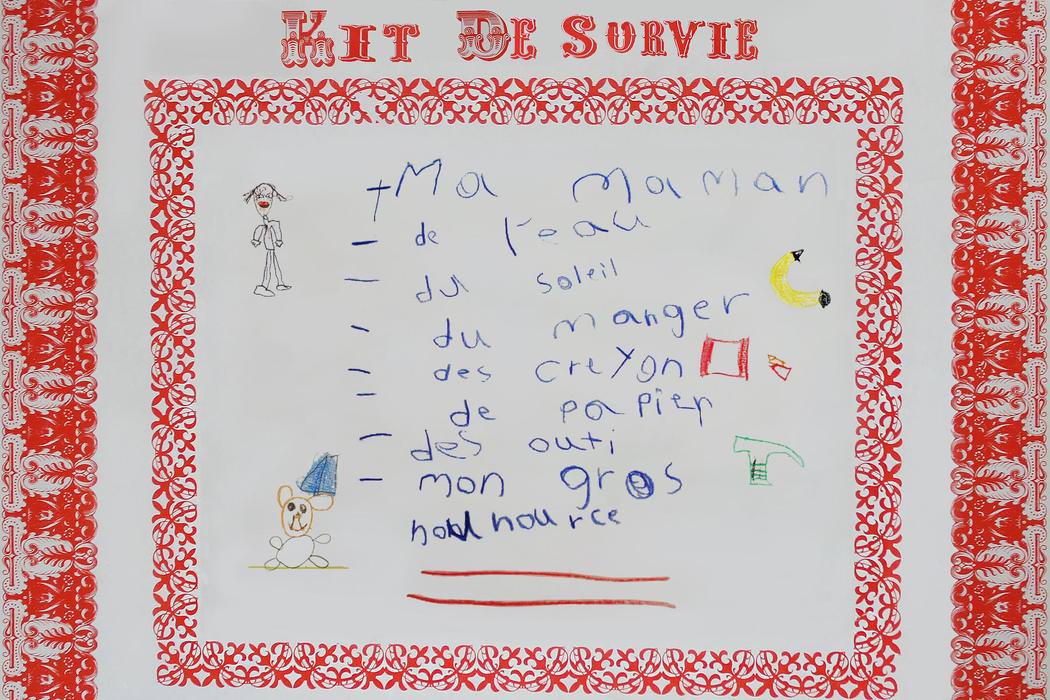 KIT DE SURVIE
+ Ma maman
- de l'eau
- du soleil
- du manger
- des creyon
- de papier
- des outi
- mon gros
nounource